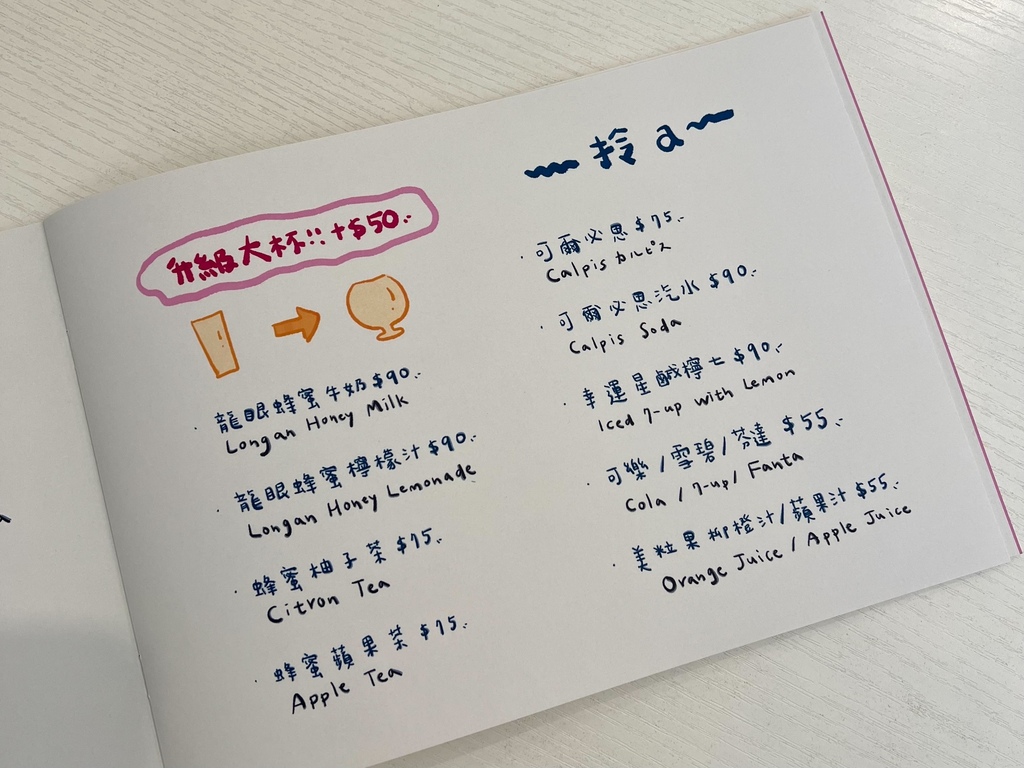 升級大杯!! +$50.-
龍眼蜂蜜牛奶 $90.-
Longan Honey Milk
龍眼蜂蜜檸檬汁 $90.-
Longan Honey Lemonade
蜂蜜柚子茶 $75.-
Citron Tea
蜂蜜蘋果茶 $75.-
Apple Tea
拎a
可爾必思 $75.-
Calpis カルピス
可爾必思汽水 $90.-
Calpis Soda
幸運星鹹檸七 $90.-
Iced 7-up with Lemon
可樂/雪碧/芬達 $55.-
Cola / 7-up/ Fanta
美粒果柳橙汁/蘋果汁 $55.-
Orange Juice / Apple Juice